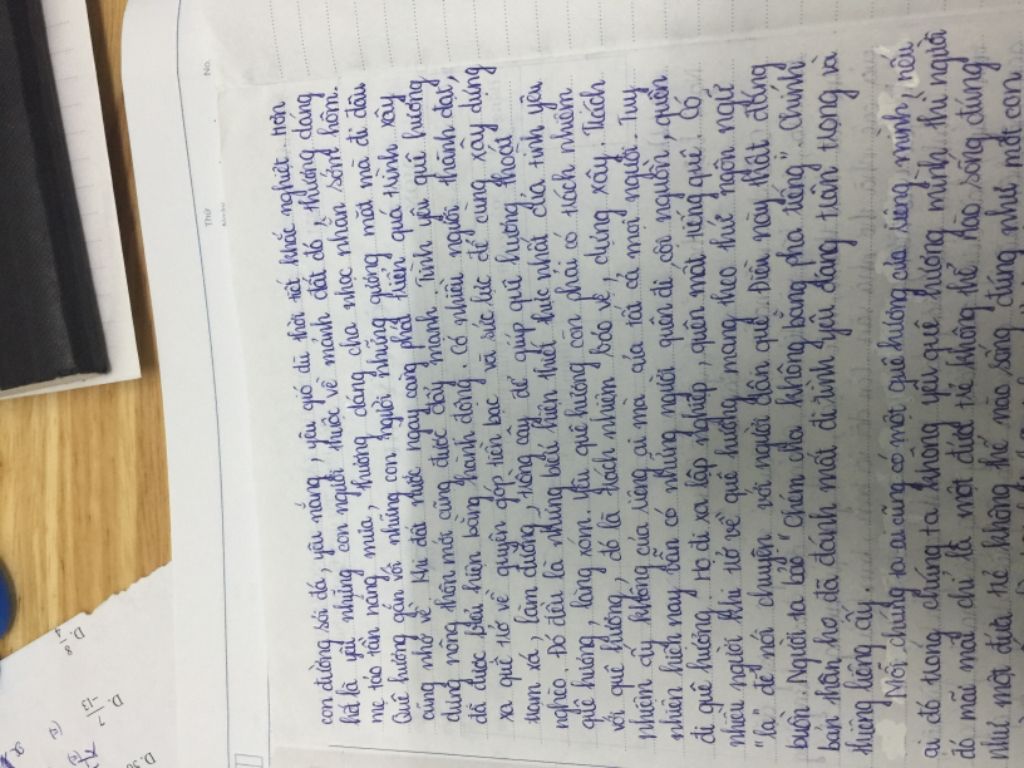 No.
Thứ
con đường sỏi đá, yêu nắng, yêu gió dù thời tiết khắc nghiệt hơn
hết là yêu những con người thuộc về mảnh đất đó, thương dáng
mẹ tảo tần nắng mưa, thương dáng cha nhọc nhằn sớm hôm.
Quê hương gắn với những con người những gương mặt mà đi đâu
cũng nhớ về. Khi đất nước ngày càng phát triển quá trình xây
dựng nông thôn mới cũng được đẩy mạnh. Tình yêu quê hương
đã được biểu hiện bằng hành động. Có nhiều người thành đạt,
xa quê trở về quyên góp tiền bạc và sức lực để cùng xây dựng
trạm xá, làm đường, trồng cây để giúp quê hương thoát
nghèo. Đó đều là những biểu hiện thiết thực nhất của tình yêu
quê hương, làng xóm. Yêu quê hương còn phải có trách nhiệm
với quê hương, đó là trách nhiệm bảo vệ, dựng xây. Trách
nhiệm ấy không của riêng ai mà của tất cả mọi người. Tuy
nhiên hiện nay vẫn có những người quên đi cội nguồn, quên
đi quê hương. Họ đi xa lập nghiệp, quên mất tiếng quê. Có
nhiều người khi trở về quê hương mang theo thứ ngôn ngữ
"lạ" để nói chuyện với người dân quê. Điều này thật đáng
buồn. Người ta bảo "Chém cha không bằng pha tiếng". Chính
bản thân họ đã đánh mất đi tình yêu đáng trân trọng và
thiêng liêng ấy.
Mỗi chúng ta ai cũng có một quê hương của riêng mình, nếu
ai đó trong chúng ta không yêu quê hương mình thì người
đó mãi mãi chỉ là một đứa trẻ không thể nào sống đúng
như một đứa trẻ không thể nào sống đúng như một con
D. 8/4
D. -7/13
D. 30